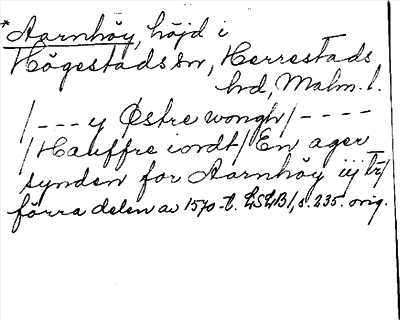 *Aarnhöy, höjd i
Högestads sn, Herrestads
hd, Malm. l.
/ - - - y Østre wongh / - - - -
/ Hauffre iordt / En ager
synden for Aarnhöy iij
förra delen av 1570-t. LSLB 1, s. 235. orig.